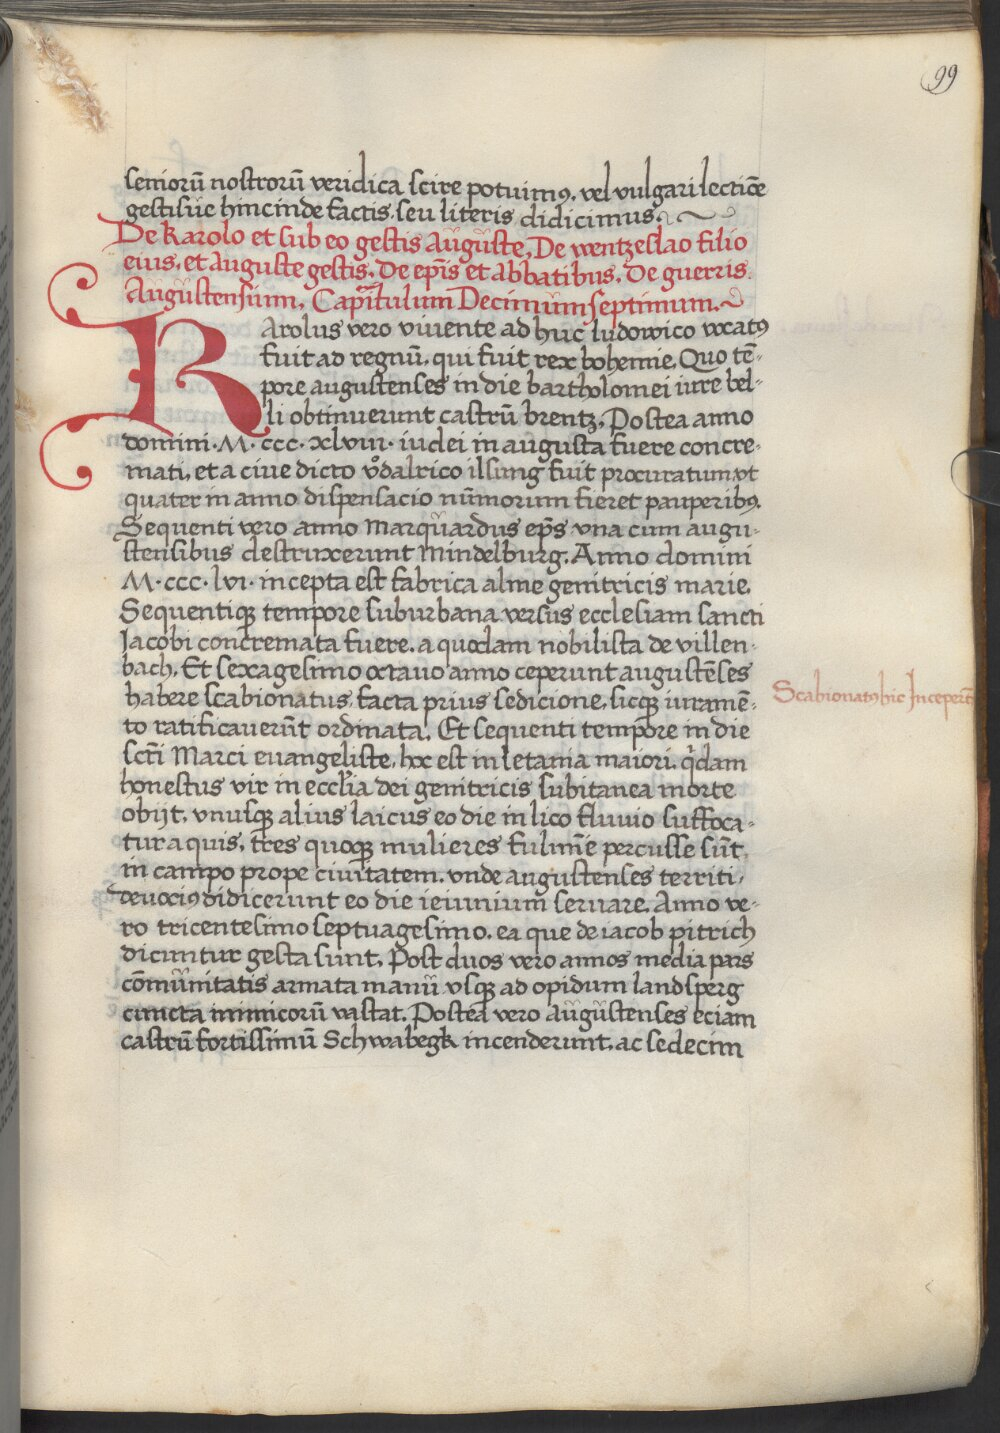 99
seniorū nostrorū veridica scire potuimꝰ, vel vulgari lectiōe
gestisue hincinde factis, seu literis didicimus.
De Karolo et sub eo gestis Auguste, De wentzeslao filio
eius, et Auguste gestis. De ep̄is et abbatibus. De guerris
Augustensium. Capitulum Decimumseptimum.
KArolus vero vivente ad huc ludowico vocatꝰ
fuit ad regnū, qui fuit rex bohemie. Quo tē-
pore augustenses in die bartholomei iure bel-
li obtinuerunt castrū brentz. Postea anno
domini · M · ccc · xlviii · iudei in augusta fuere concre-
mati, et a ciue dicto vͦdalrico ilsung fuit procuratum, vt
quater in anno dispensacio nūmorum fieret pauperibꝰ.
Sequenti vero anno Marquardus ep̄s vna cum augu-
stensibus destruxerunt Mindelburg. Anno domini
M · ccc · lvi · incepta est fabrica alme genitricis marie.
Sequentiqꝫ tempore suburbana versus ecclesiam sancti
Jacobi concremata fuere, a quodam nobilista de villen-
bach. Et sexagesimo octauo anno ceperunt augustēses
habere scabionatus, facta prius sedicione, sicqꝫ iuramē-
to ratificauerūt ordinata. Et sequenti tempore in die
sc̄ti Marci euangeliste, hoc est in letania maiori, q̇dam
honestus vir in eccl̄ia dei genitricis subitanea morte
obijt, vnusqꝫ alius laicus eo die in lico fluuio suffoca-
tur aquis, tres quoqꝫ mulieres fulmīe percusse sūt,
in campo prope ciuitatem. vnde augustenses territi,
deuociꝰ didicerunt eo die ieiunium seruare. Anno ve-
ro tricentesimo septuagesimo, ea que de iacob pitrich
dicuntur gesta sunt. Post duos vero annos media pars
cōmunitatis armata manu vsqꝫ ad opidum landsperg
cuncta inimicorū vastat. Postea vero augustenses eciam
castrū fortissimū Schwabegk incenderunt, ac sedecim
Scabionatꝰ hic Inceperūt